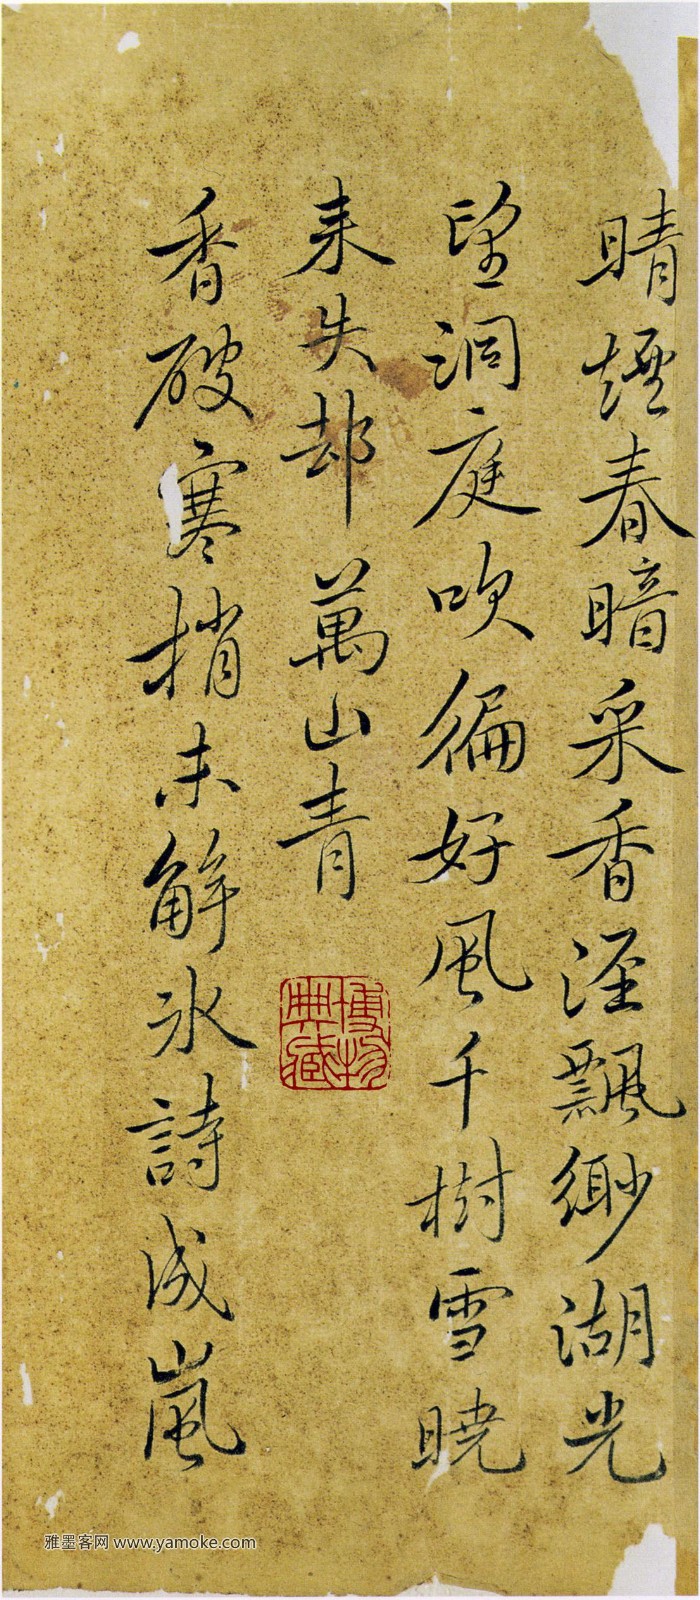 晴煙春暗采香涇飄緲湖光
望洞庭吹徧好風千樹雪曉
来失却萬山青
香破寒梢未解冰詩成嵐
博物
典藏
雅墨客网 www.yamoke.com